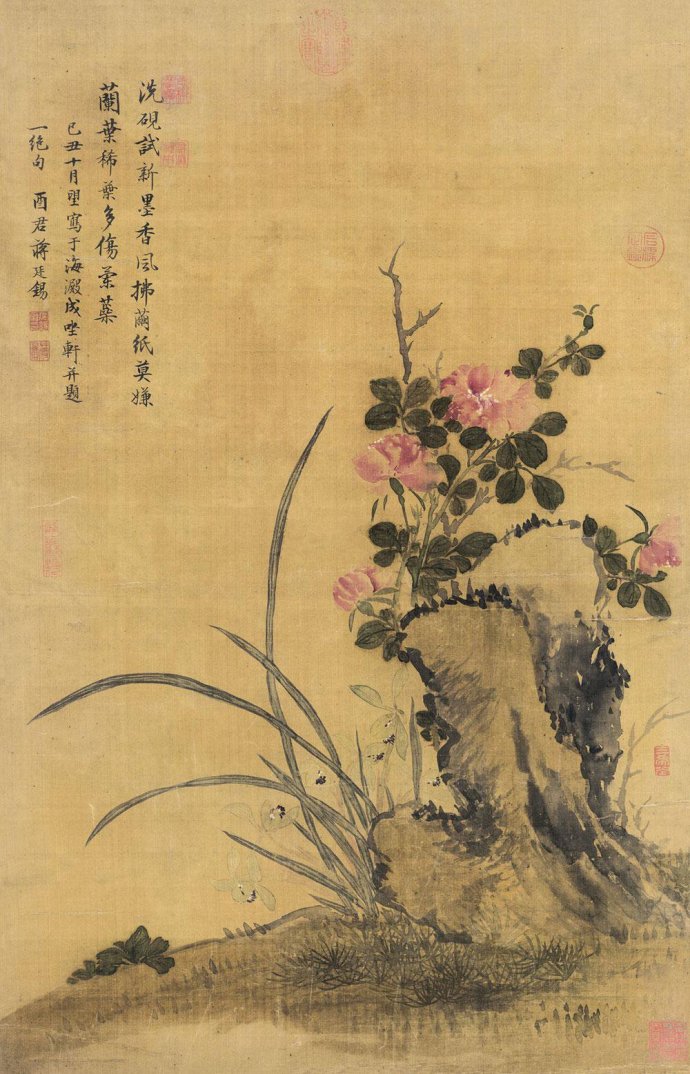 洗硯試新墨香風拂繭紙莫嫌
蘭葉稀葉多傷蘭蘂
己丑十月朢寫于海澱成坐軒并題
一絕句　酉君蔣廷錫